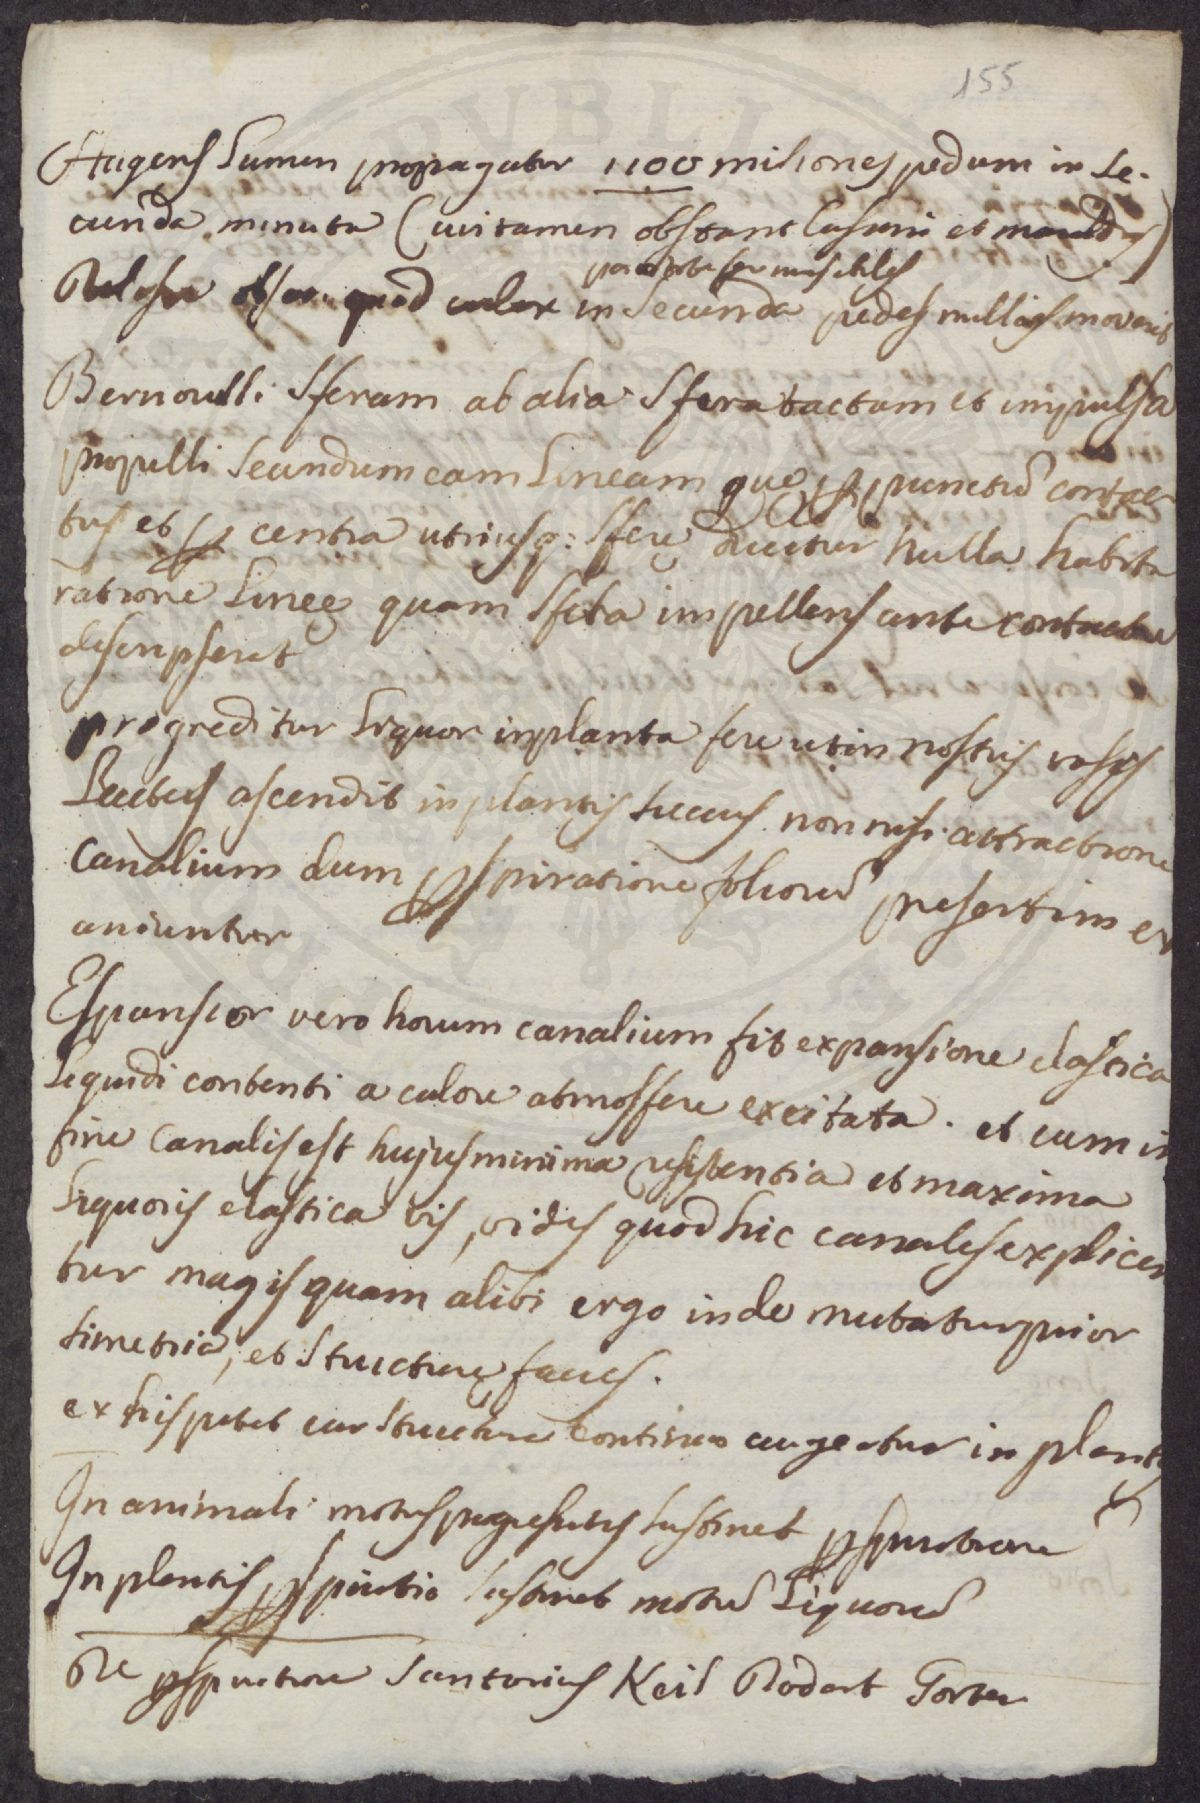 155
Hugens Lumen propagatur 1100 miliones pedum in Se-
cunda minuta (cui tamen obstant Cassini et
in Secunda pedes
Bernoulli Sferam ab alia Sfera tactam et impulsa
propelli secundum eam Lineam que p punctū contac
tus et p centra utriusq: Sferę ducitur nulla habita
ratione Lineę quam Sfera impellens ante contactu
descripserat
progreditur Liquor in planta fere ut in nostris vasis
ascendit in plantis succus non nisi attractione
Canalium dum pspiratione foliorū presertim ex
aniuntur
Espansior vero horum canalium fit expansione elastica
Liquidi contenti a calore atmosfere excitata. et cum in
fine canalis est hujus minima resistentia et maxima
Liquoris elastica vis, vides quod hic canales explicen
tur magis quam alibi ergo inde mutatur prior
simetria, et Structurę facies.
ex his patet cur Structura continuo augeatur in plantis
In animali motus progressivus sustinet pspirationem
In plantis pspiratio sustinet motū Liquorū
De pspiratione Santorius Keil Dodart Gorter